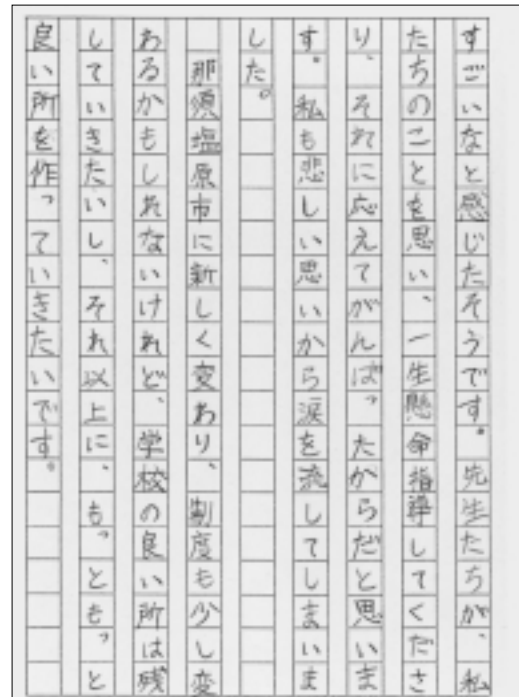 すごいなと感じたそうです。先生たちが、私
たちのことを思い、一生懸命指導してくださ
り、それに応えてがんばったからだと思いま
す。私も悲しい思いから涙を流してしまいま
した。
那須塩原市に新しく変わり、制度も少し変
わるかもしれないけれど、学校の良い所は残
していきたいし、それ以上に、もっともっと
良い所を作っていきたいです。